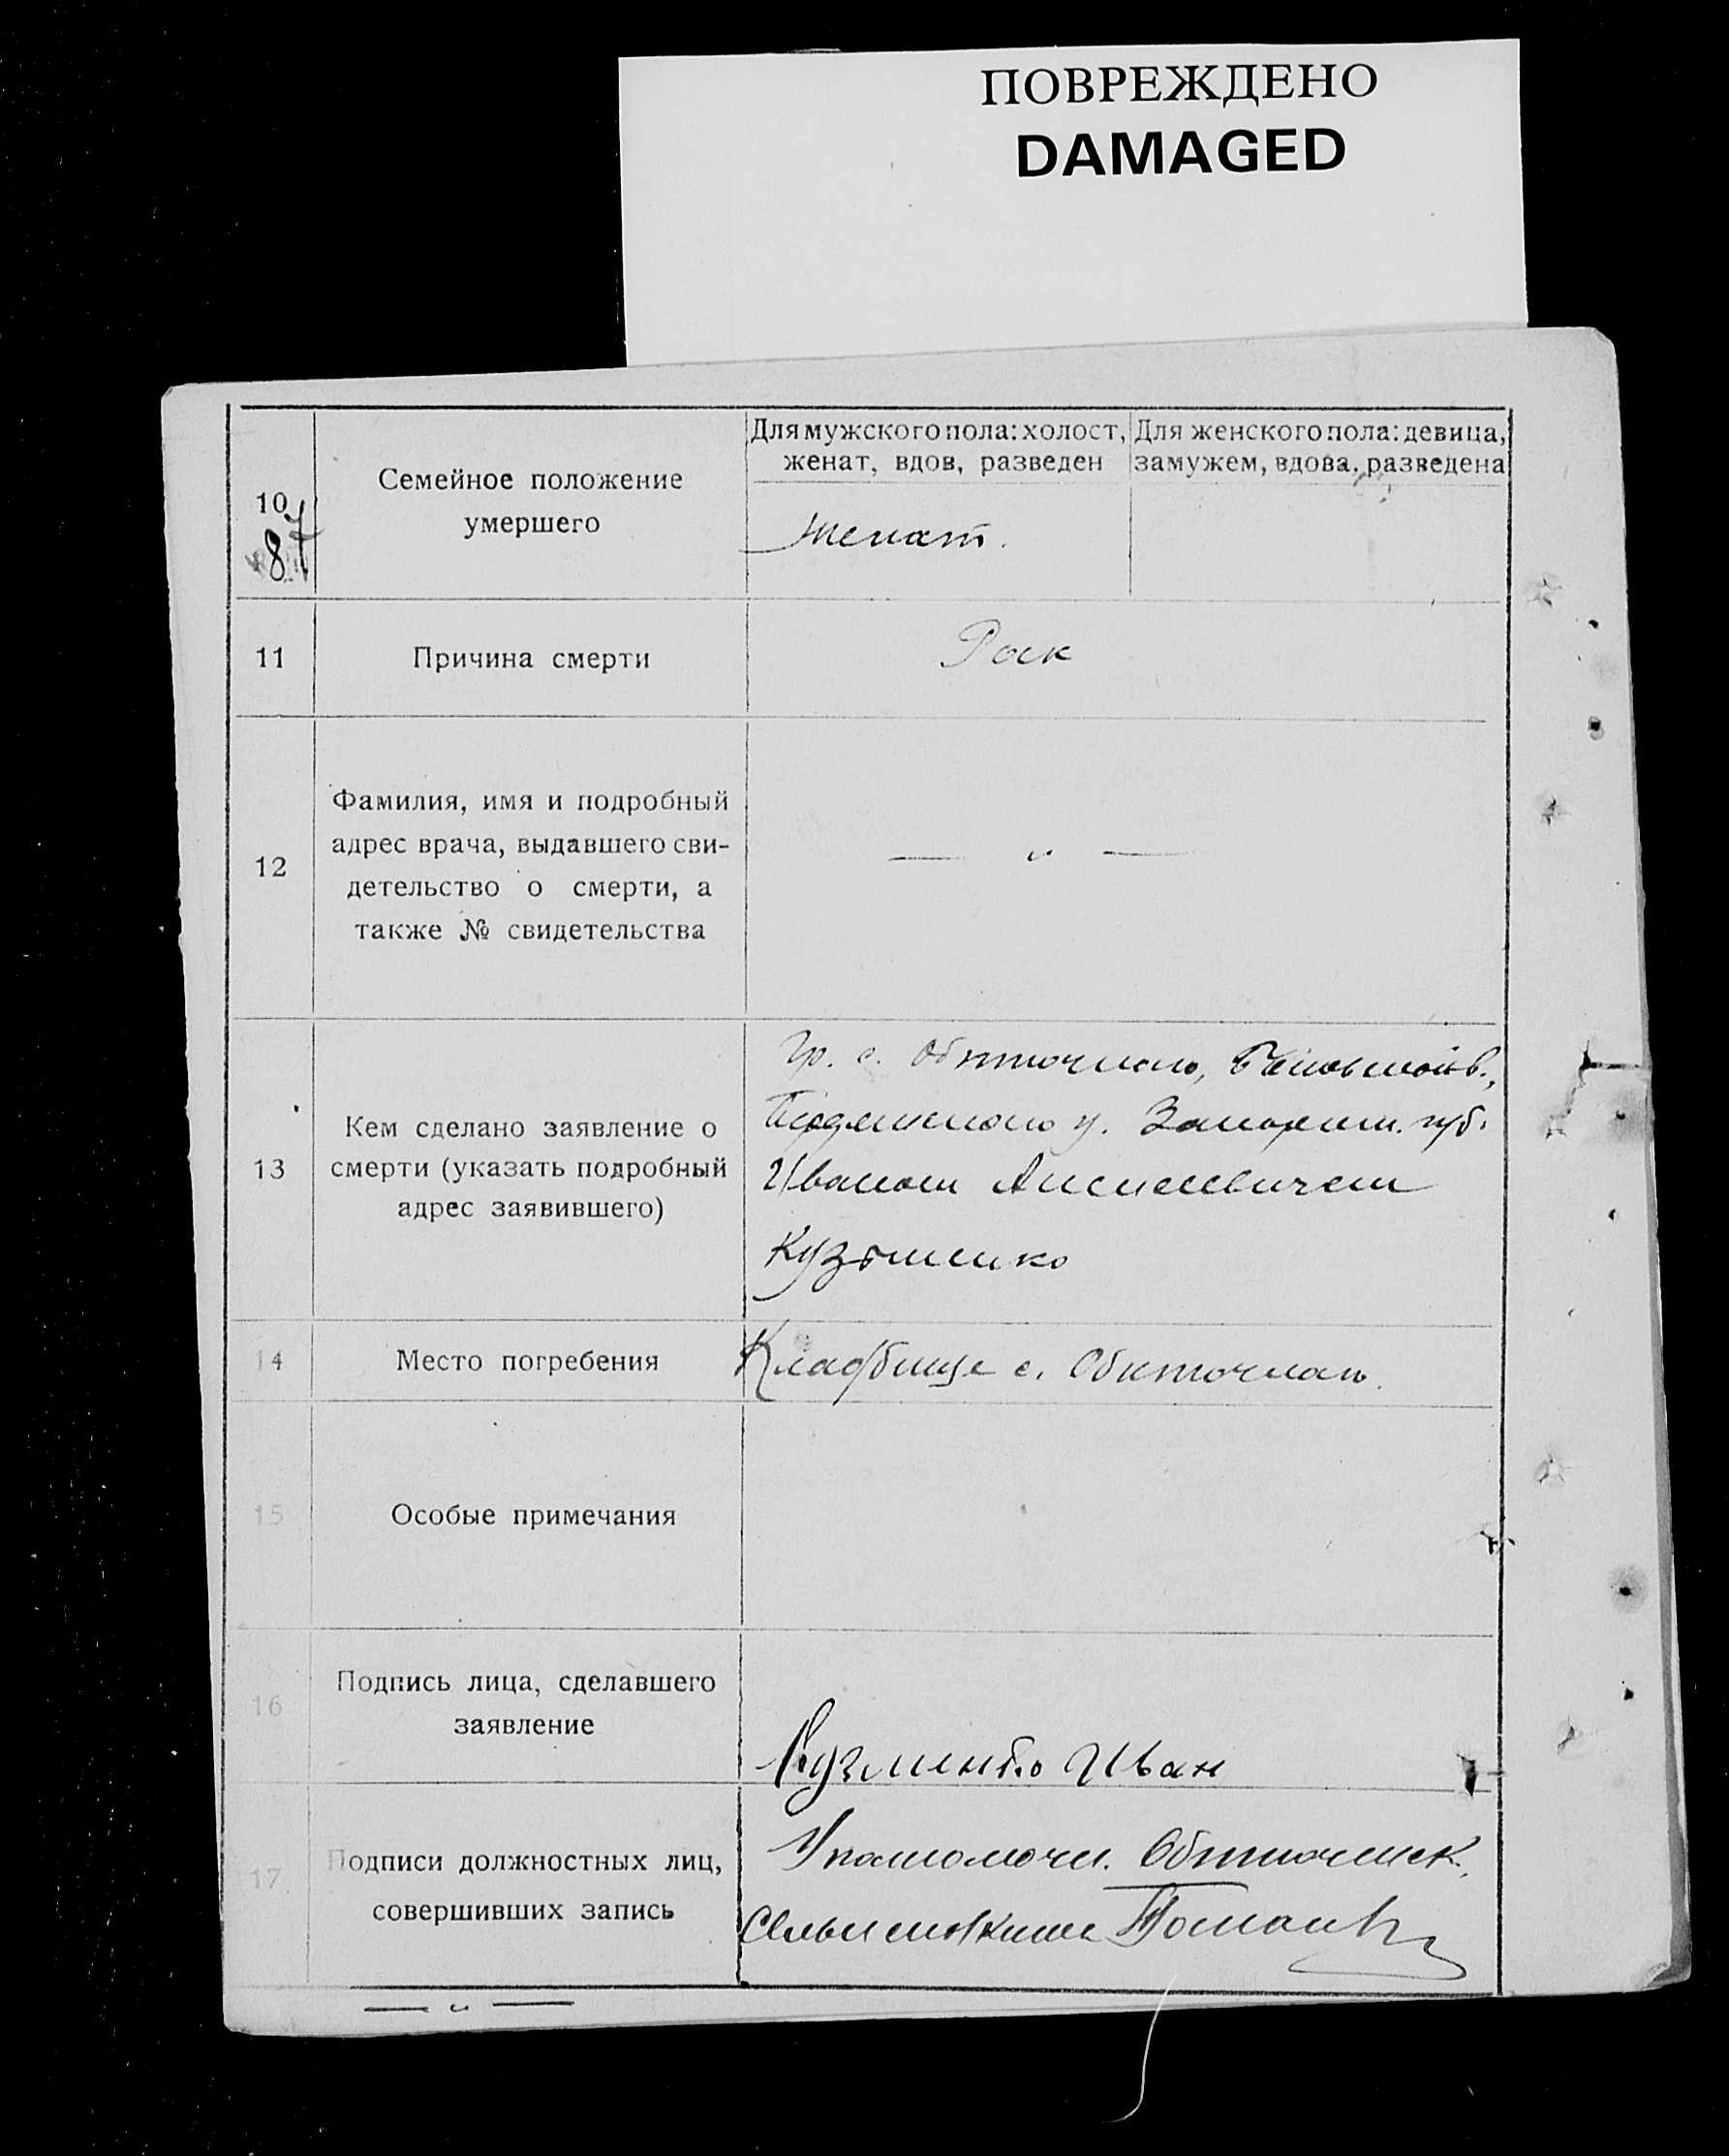 ПОВРЕЖДЕНО
DAMAGED
10
87
Семейное положение
умершего
Для мужского пола: холост,
женат, вдов, разведен
Для женского пола: девица,
замужем, вдова, разведена
женат.
11
Причина смерти
Раск
12
Фамилия, имя и подробный
адрес врача, выдавшего сви-
детельство о смерти, а
также № свидетельства
— " —
13
Кем сделано заявление о
смерти (указать подробный
адрес заявившего)
Гр. с. Обиточного,
у. Запорож. губ.
Иваном
Кузьменко
14
Место погребения
Кладбище с. Обиточного.
15
Особые примечания
16
Подпись лица, сделавшего
заявление
Кузменко Иван
17
Подписи должностных лиц,
совершивших запись
Уполномочен. Обиточенск.
— " —